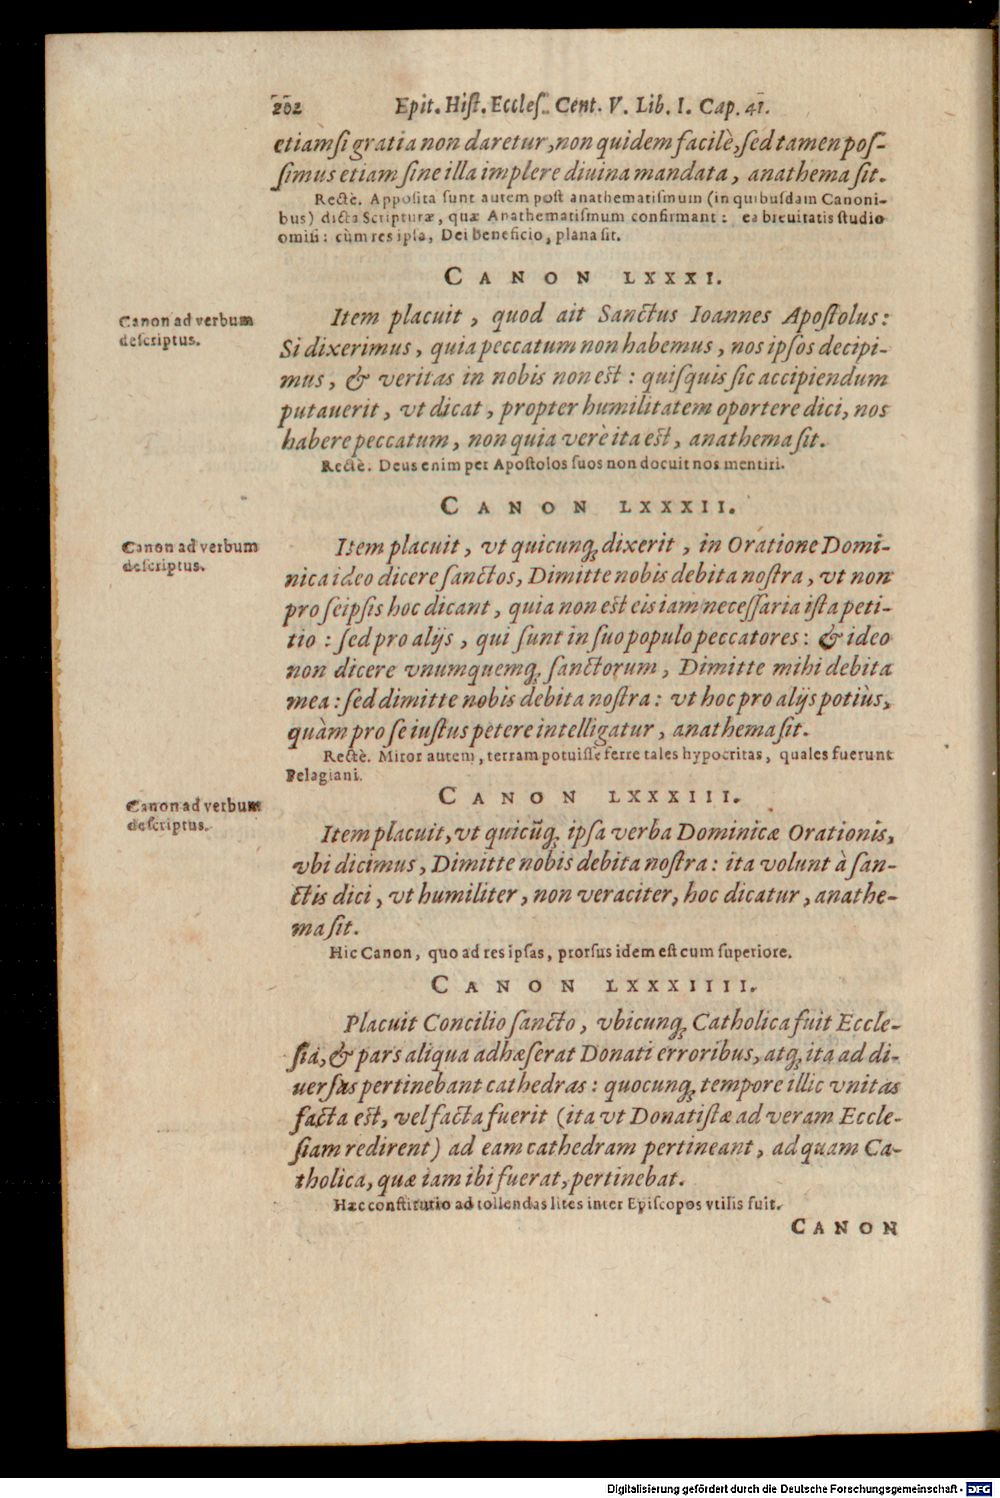 202 Epit. Hiſt. Eccleſ. Cent. V. Lib. I. Cap. 41.
etiamſi gratia non daretur, non quidem facilè, ſed tamen poſ-
ſimus etiam ſine illa implere diuina mandata, anathema ſit.
Rectè. Appoſita ſunt autem poſt anathematiſmum (in quibuſdam Canoni-
bus) dicta Scripturæ, quæ Anathematiſmum confirmant: ea breuitatis ſtudio
omiſi: cùm res ipſa, Dei beneficio, plana ſit.
CANON LXXXI.
Canon ad verbum
deſcriptus.
Item placuit, quod ait Sanctus Ioannes Apoſtolus:
Si dixerimus, quia peccatum non habemus, nos ipſos decipi-
mus, & veritas in nobis non eſt: quiſquis ſic accipiendum
putauerit, vt dicat, propter humilitatem oportere dici, nos
habere peccatum, non quia verè ita eſt, anathema ſit.
Rectè. Deus enim per Apoſtolos ſuos non docuit nos mentiri.
CANON LXXXII.
Canon ad verbum
deſcriptus.
Item placuit, vt quicunq; dixerit, in Oratione Domi-
nica ideo dicere ſanctos, Dimitte nobis debita noſtra, vt non
pro ſeipſis hoc dicant, quia non eſt eis iam neceſſaria iſta peti-
tio: ſed pro alijs, qui ſunt in ſuo populo peccatores: & ideo
non dicere vnumquemq; ſanctorum, Dimitte mihi debita
mea: ſed dimitte nobis debita noſtra: vt hoc pro alijs potiùs,
quàm pro ſe iuſtus petere intelligatur, anathema ſit.
Rectè. Miror autem, terram potuiſſe ferre tales hypocritas, quales fuerunt
Pelagiani.
CANON LXXXIII.
Canon ad verbum
deſcriptus.
Item placuit, vt quicūq; ipſa verba Dominicæ Orationis,
vbi dicimus, Dimitte nobis debita noſtra: ita volunt à ſan-
ctis dici, vt humiliter, non veraciter, hoc dicatur, anathe-
ma ſit.
Hic Canon, quo ad res ipſas, prorſus idem eſt cum ſuperiore.
CANON LXXXIIII.
Placuit Concilio ſancto, vbicunq; Catholica fuit Eccle-
ſia, & pars aliqua adhæſerat Donati erroribus, atq; ita ad di-
uerſas pertinebant cathedras: quocunq; tempore illic vnitas
facta eſt, vel facta fuerit (ita vt Donatiſtæ ad veram Eccle-
ſiam redirent) ad eam cathedram pertineant, ad quam Ca-
tholica, quæ iam ibi fuerat, pertinebat.
Hæc conſtitutio ad tollendas lites inter Epiſcopos vtilis fuit.
CANON
Digitalisierung gefördert durch die Deutsche Forschungsgemeinschaft - DFG